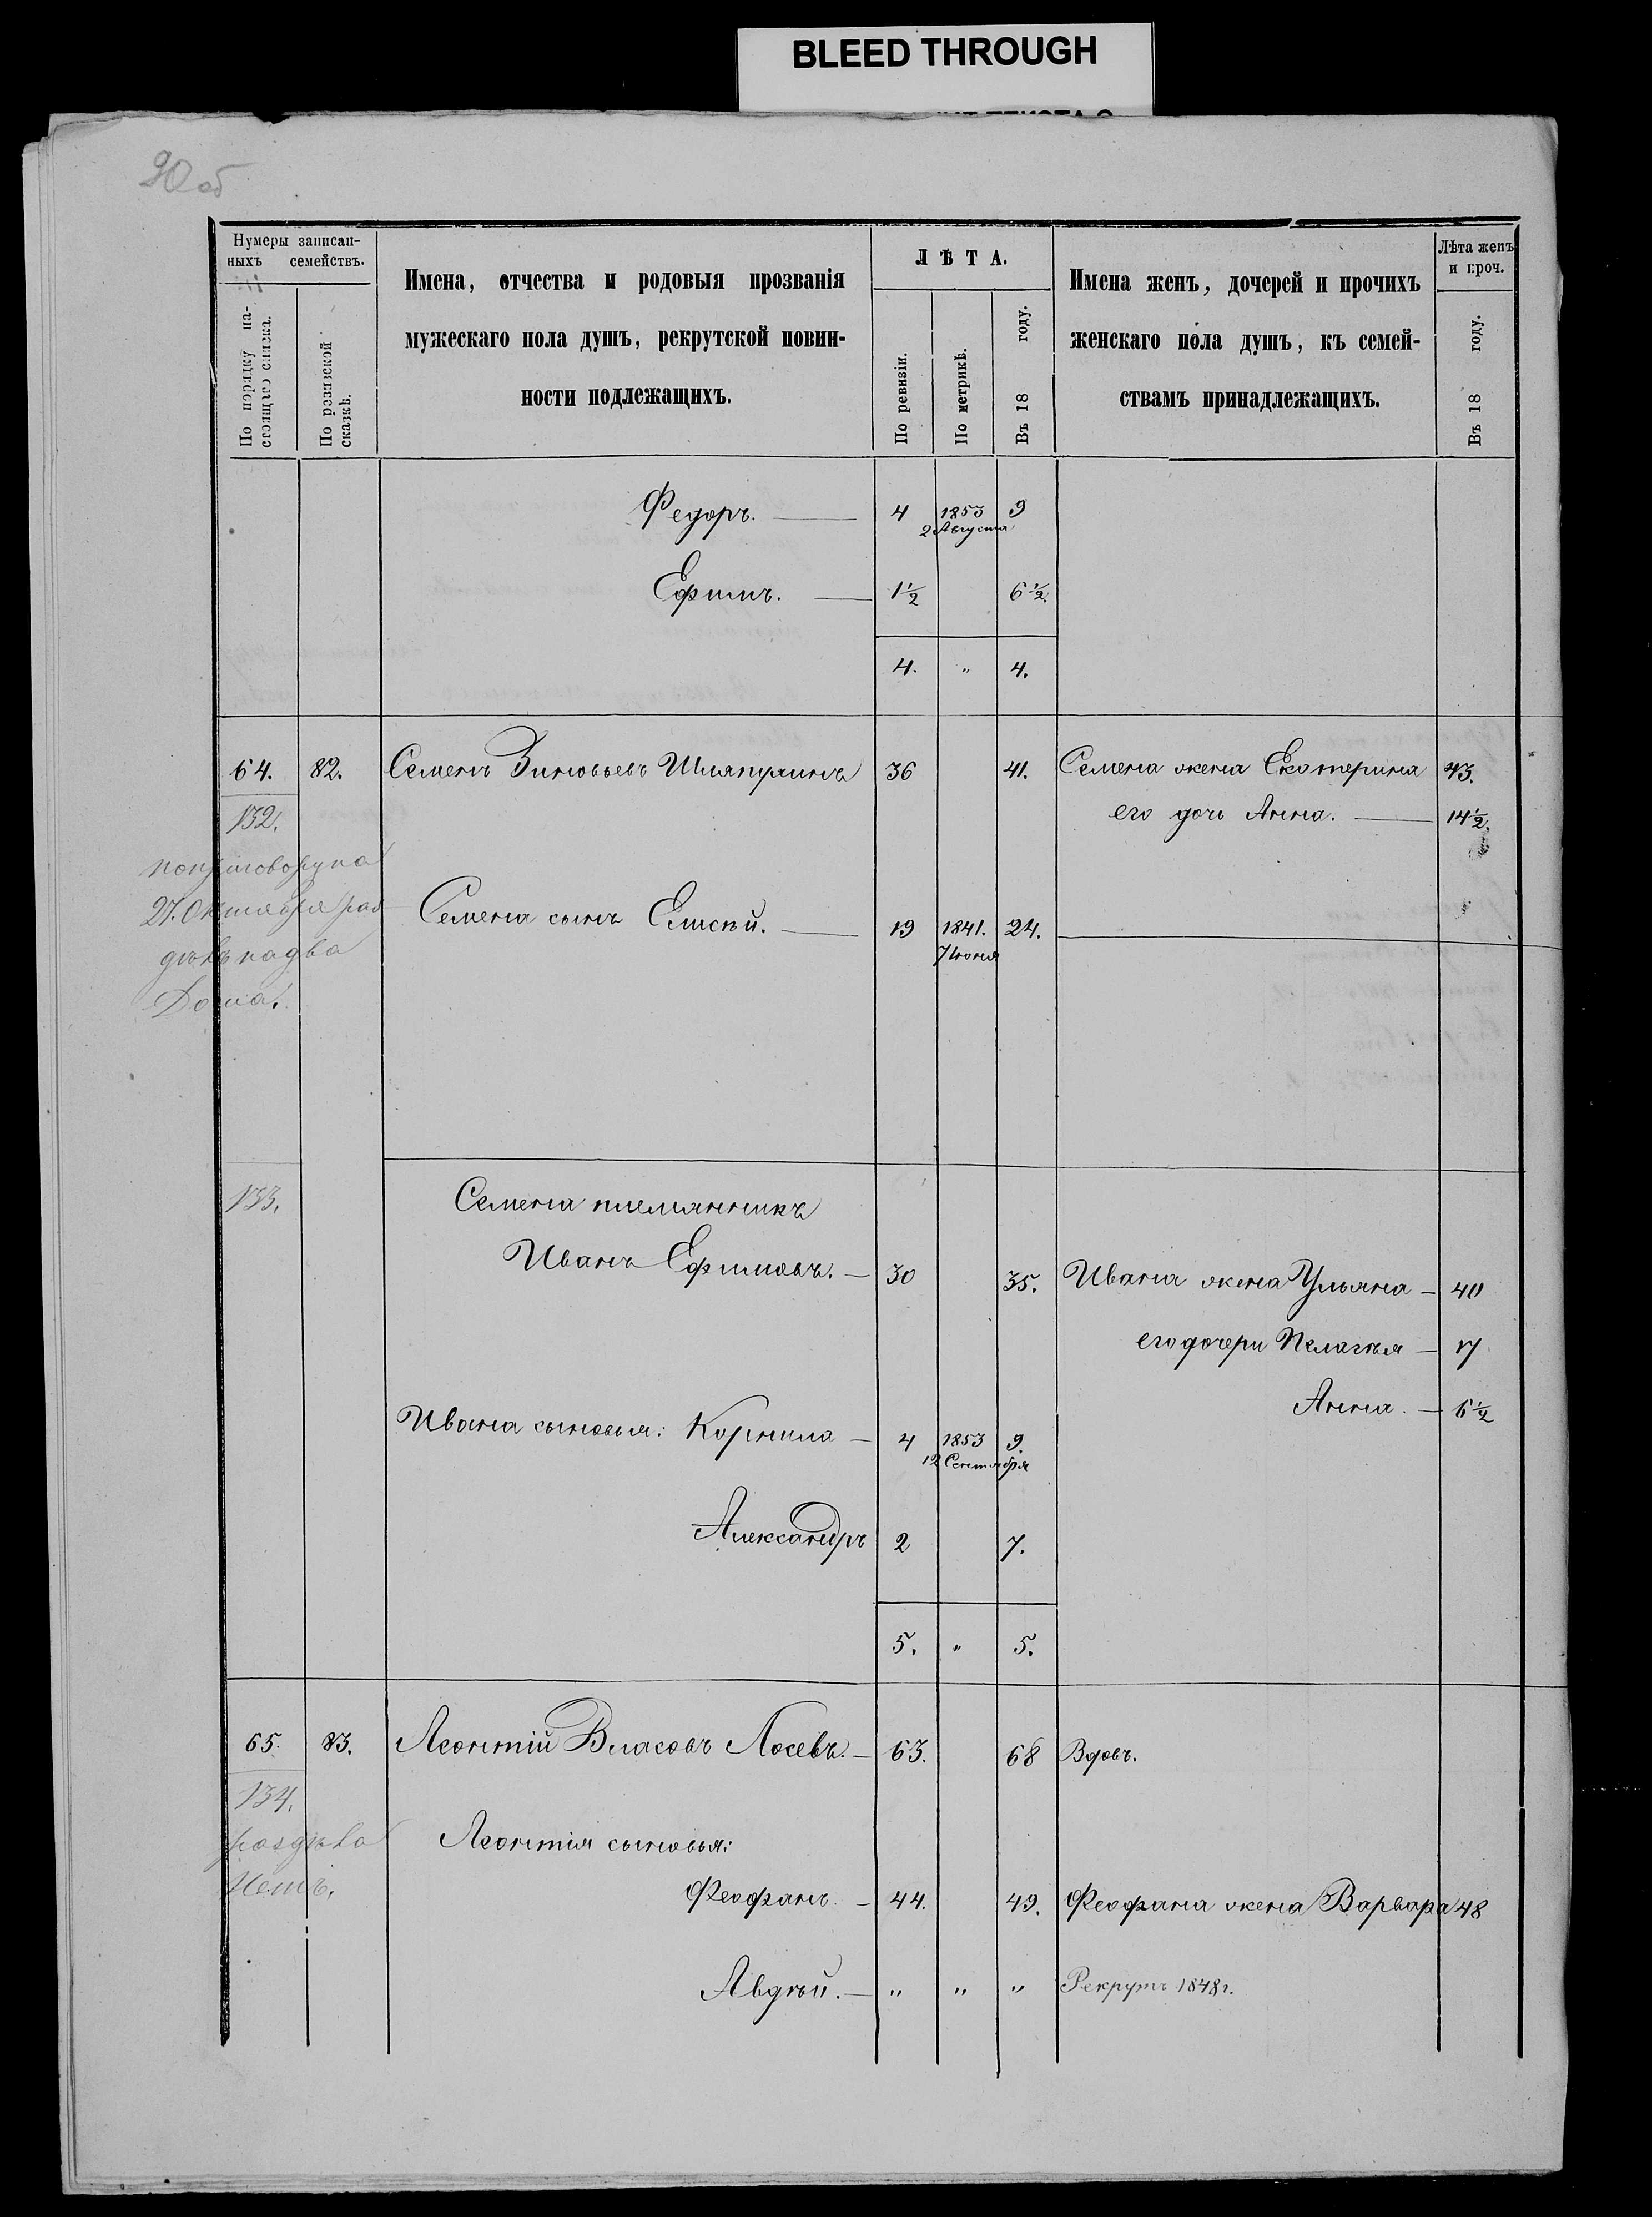 BLEED THROUGH
90 об
Нумеры записан-
ныхъ семействъ.
По порядку на-
стоящаго списка.
По ревизской
сказкѣ.
Имена, отчества и родовыя прозванія
мужескаго пола душъ, рекрутской повин-
ности подлежащихъ.
ЛѢТА.
По ревизіи.
По метрикѣ.
Въ 18 году.
Имена женъ, дочерей и прочихъ
женскаго пола душъ, къ семей-
ствамъ принадлежащихъ.
Лѣта женъ
и проч.
Въ 18 году.
Федоръ. 4 1853 9
2 Августа
Ефимъ. 1½ 6½.
4. " 4.
64. 82. Семенъ Зиновьевъ Шляпкинъ 36 41. Семена жена Екатерина 43.
132. его дочь Анна. 14½.
по приговору на
27. Октября раз
Семена сынъ Елисѣй. 19 1841. 24.
7 Июня
дѣлъ на два
Дома.
133. Семена племянникъ
Иванъ Ефимовъ. 30 35. Ивана жена Ульяна 40
его дочери Пелагѣя 17
Анна. 6½
Ивана сыновья: Корнила 4 1853 9.
12 Сентября
Александръ 2 7.
5. " 5.
65. 83. Леонтій Власовъ Лосевъ. 63. 68 Вдовъ.
134.
раздѣла Леонтія сыновья:
Нетъ.
Феофанъ. 44. 49. Феофана жена Варвара 48
Авдѣй. " " " Рекрутъ 1848 г.